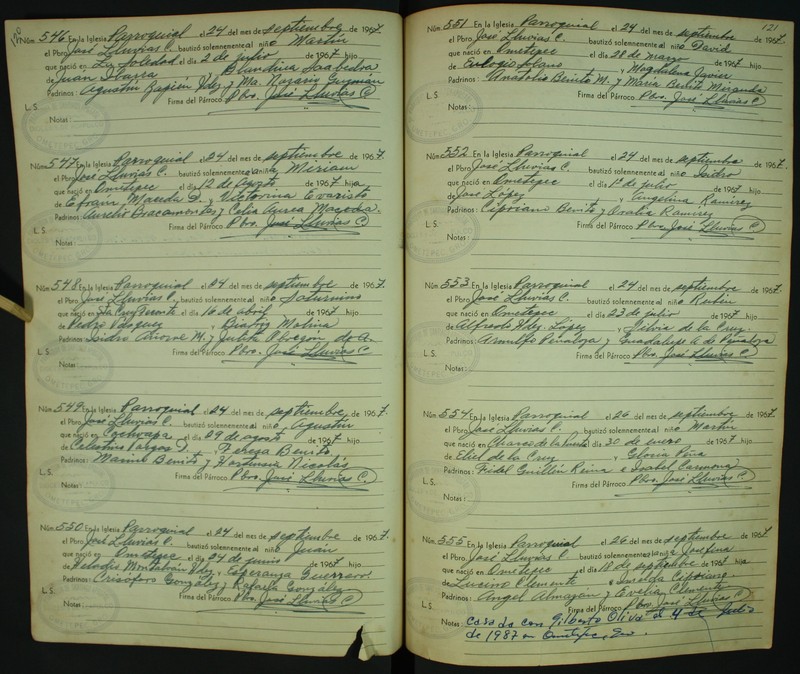 120
Núm. 546 En la Iglesia Parroquial el 24 del mes de septiembre de 1967.
el Pbro. José Lluvias C. bautizó solemnemente al niño Martín
que nació en La Soledad el día 2 de julio de 1967 hijo
de Juan Ibarra y Blandina Saabedra
Padrinos: Agustín Zapién Vdez y Ma. Nazario Guzmán
L. S. Firma del Párroco Pbro. José Lluvias C
Notas:
Núm. 547 En la Iglesia Parroquial el 24 del mes de septiembre de 1967.
el Pbro. José Lluvias C. bautizó solemnemente a la niña Miriam
que nació en Ometepec el día 12 de agosto de 1967 hija
de Efraín Mauda D. y Victorina Evaristo
Padrinos: Aurelio Bracamontes y Celia Aurea
L. S. Firma del Párroco Pbro. José Lluvias C
Notas:
Núm. 548 En la Iglesia Parroquial el 24 del mes de septiembre de 1967.
el Pbro. José Lluvias C. bautizó solemnemente al niño Saturnino
que nació en el día 16 de abril de 1967 hijo
de Pedro Vásquez y Beatriz Molina
Padrinos: Isidro M. y Julita Obregón de A.
L. S. Firma del Párroco Pbro. José Lluvias C
Notas:
Núm. 549 En la Iglesia Parroquial el 24 del mes de septiembre de 1967.
el Pbro. José Lluvias C. bautizó solemnemente al niño Agustín
que nació en Cochoapa el día 29 de agosto de 1967 hijo
de Celestino Vargas y Teresa Benito
Padrinos: Marino Benito y Hortencia Nicolás
L. S. Firma del Párroco Pbro. José Lluvias C
Notas:
Núm. 550 En la Iglesia Parroquial el 24 del mes de septiembre de 1967.
el Pbro. José Lluvias C. bautizó solemnemente al niño Juan
que nació en Ometepec el día 24 de junio de 1967 hijo
de Montalbán y Esperanza Guerrero
Padrinos: Crisóforo González y Rafaela González
L. S. Firma del Párroco Pbro. José Lluvias C
Notas:
121
Núm. 551 En la Iglesia Parroquial el 24 del mes de septiembre de 1967.
el Pbro. José Lluvias C. bautizó solemnemente al niño David
que nació en Ometepec el día 28 de marzo de 1967 hijo
de Eulogio Solano y Magdalena Javier
Padrinos: Anatolio Benito M. y María Benito Miranda
L. S. Firma del Párroco Pbro. José Lluvias C
Notas:
Núm. 552 En la Iglesia Parroquial el 24 del mes de septiembre de 1967.
el Pbro. José Lluvias C. bautizó solemnemente al niño Isidro
que nació en Ometepec el día 1º de julio de 1967 hijo
de José López y Angelina Ramírez
Padrinos: Cipriano Benito y Oralia Ramírez
L. S. Firma del Párroco Pbro. José Lluvias C
Notas:
Núm. 553 En la Iglesia Parroquial el 24 del mes de septiembre de 1967.
el Pbro. José Lluvias C. bautizó solemnemente al niño Rubén
que nació en Ometepec el día 23 de julio de 1967 hijo
de Alfredo Hdz. López y Silvia de la Cruz
Padrinos: Arnulfo Peñaloza y Guadalupe A de Peñaloza
L. S. Firma del Párroco Pbro. José Lluvias C
Notas:
Núm. 554 En la Iglesia Parroquial el 26 del mes de septiembre de 1967.
el Pbro. José Lluvias C. bautizó solemnemente al niño Martín
que nació en Charco de la Puerta el día 30 de enero de 1967 hijo
de Eliel de la Cruz y Gloria Peña
Padrinos: Fidel Guillén Reina e Isabel Carmona
L. S. Firma del Párroco Pbro. José Lluvias C
Notas:
Núm. 555 En la Iglesia Parroquial el 26 del mes de septiembre de 1967.
el Pbro. José Lluvias C bautizó solemnemente a la niña Josefina
que nació en Ometepec el día 18 de septiembre de 1967 hija
de Luciano Clemente e Imelda Cipriano
Padrinos: Angel Almazán y Evelia Clemente
L. S. Firma del Párroco Pbro. José Lluvias C
Notas: Casada con Gilberto Oliva el 4 de Julio
de 1987 en Ometepec, Gro.